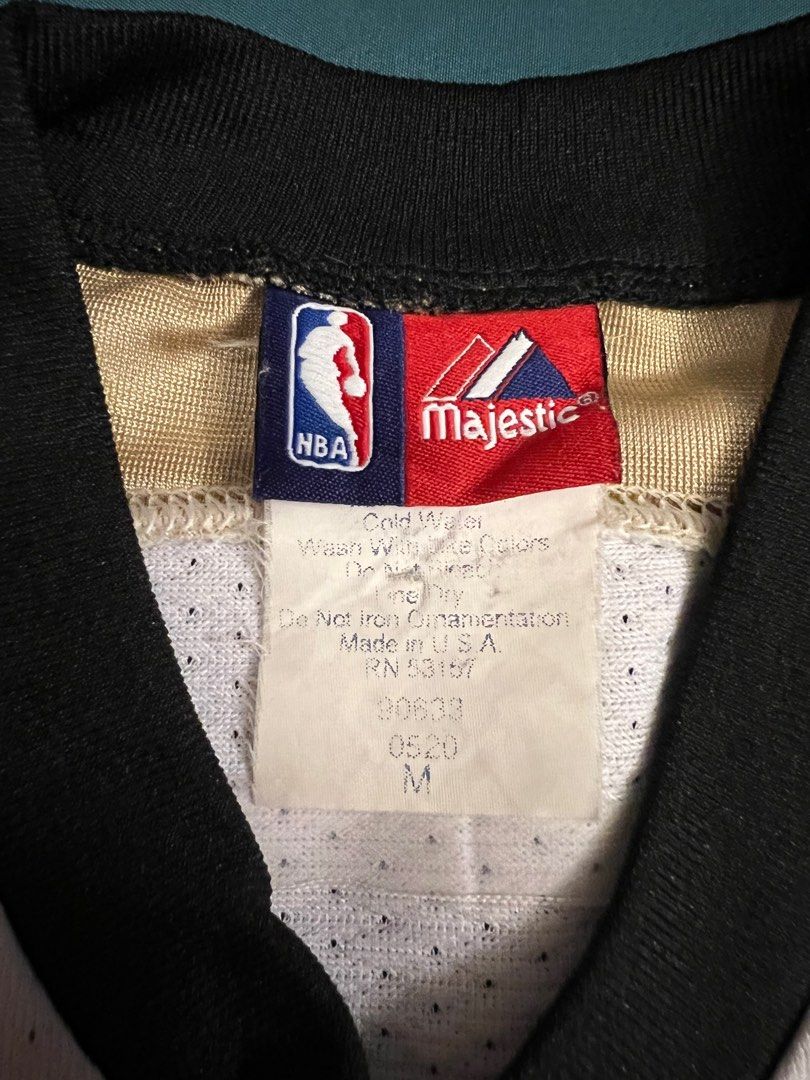 NBA
Majestic®
Cold Water
Wash With Like Colors
Do Not Bleach
Line Dry
Do Not Iron Ornamentation
Made in U.S.A.
RN 53157
90633
0520
M